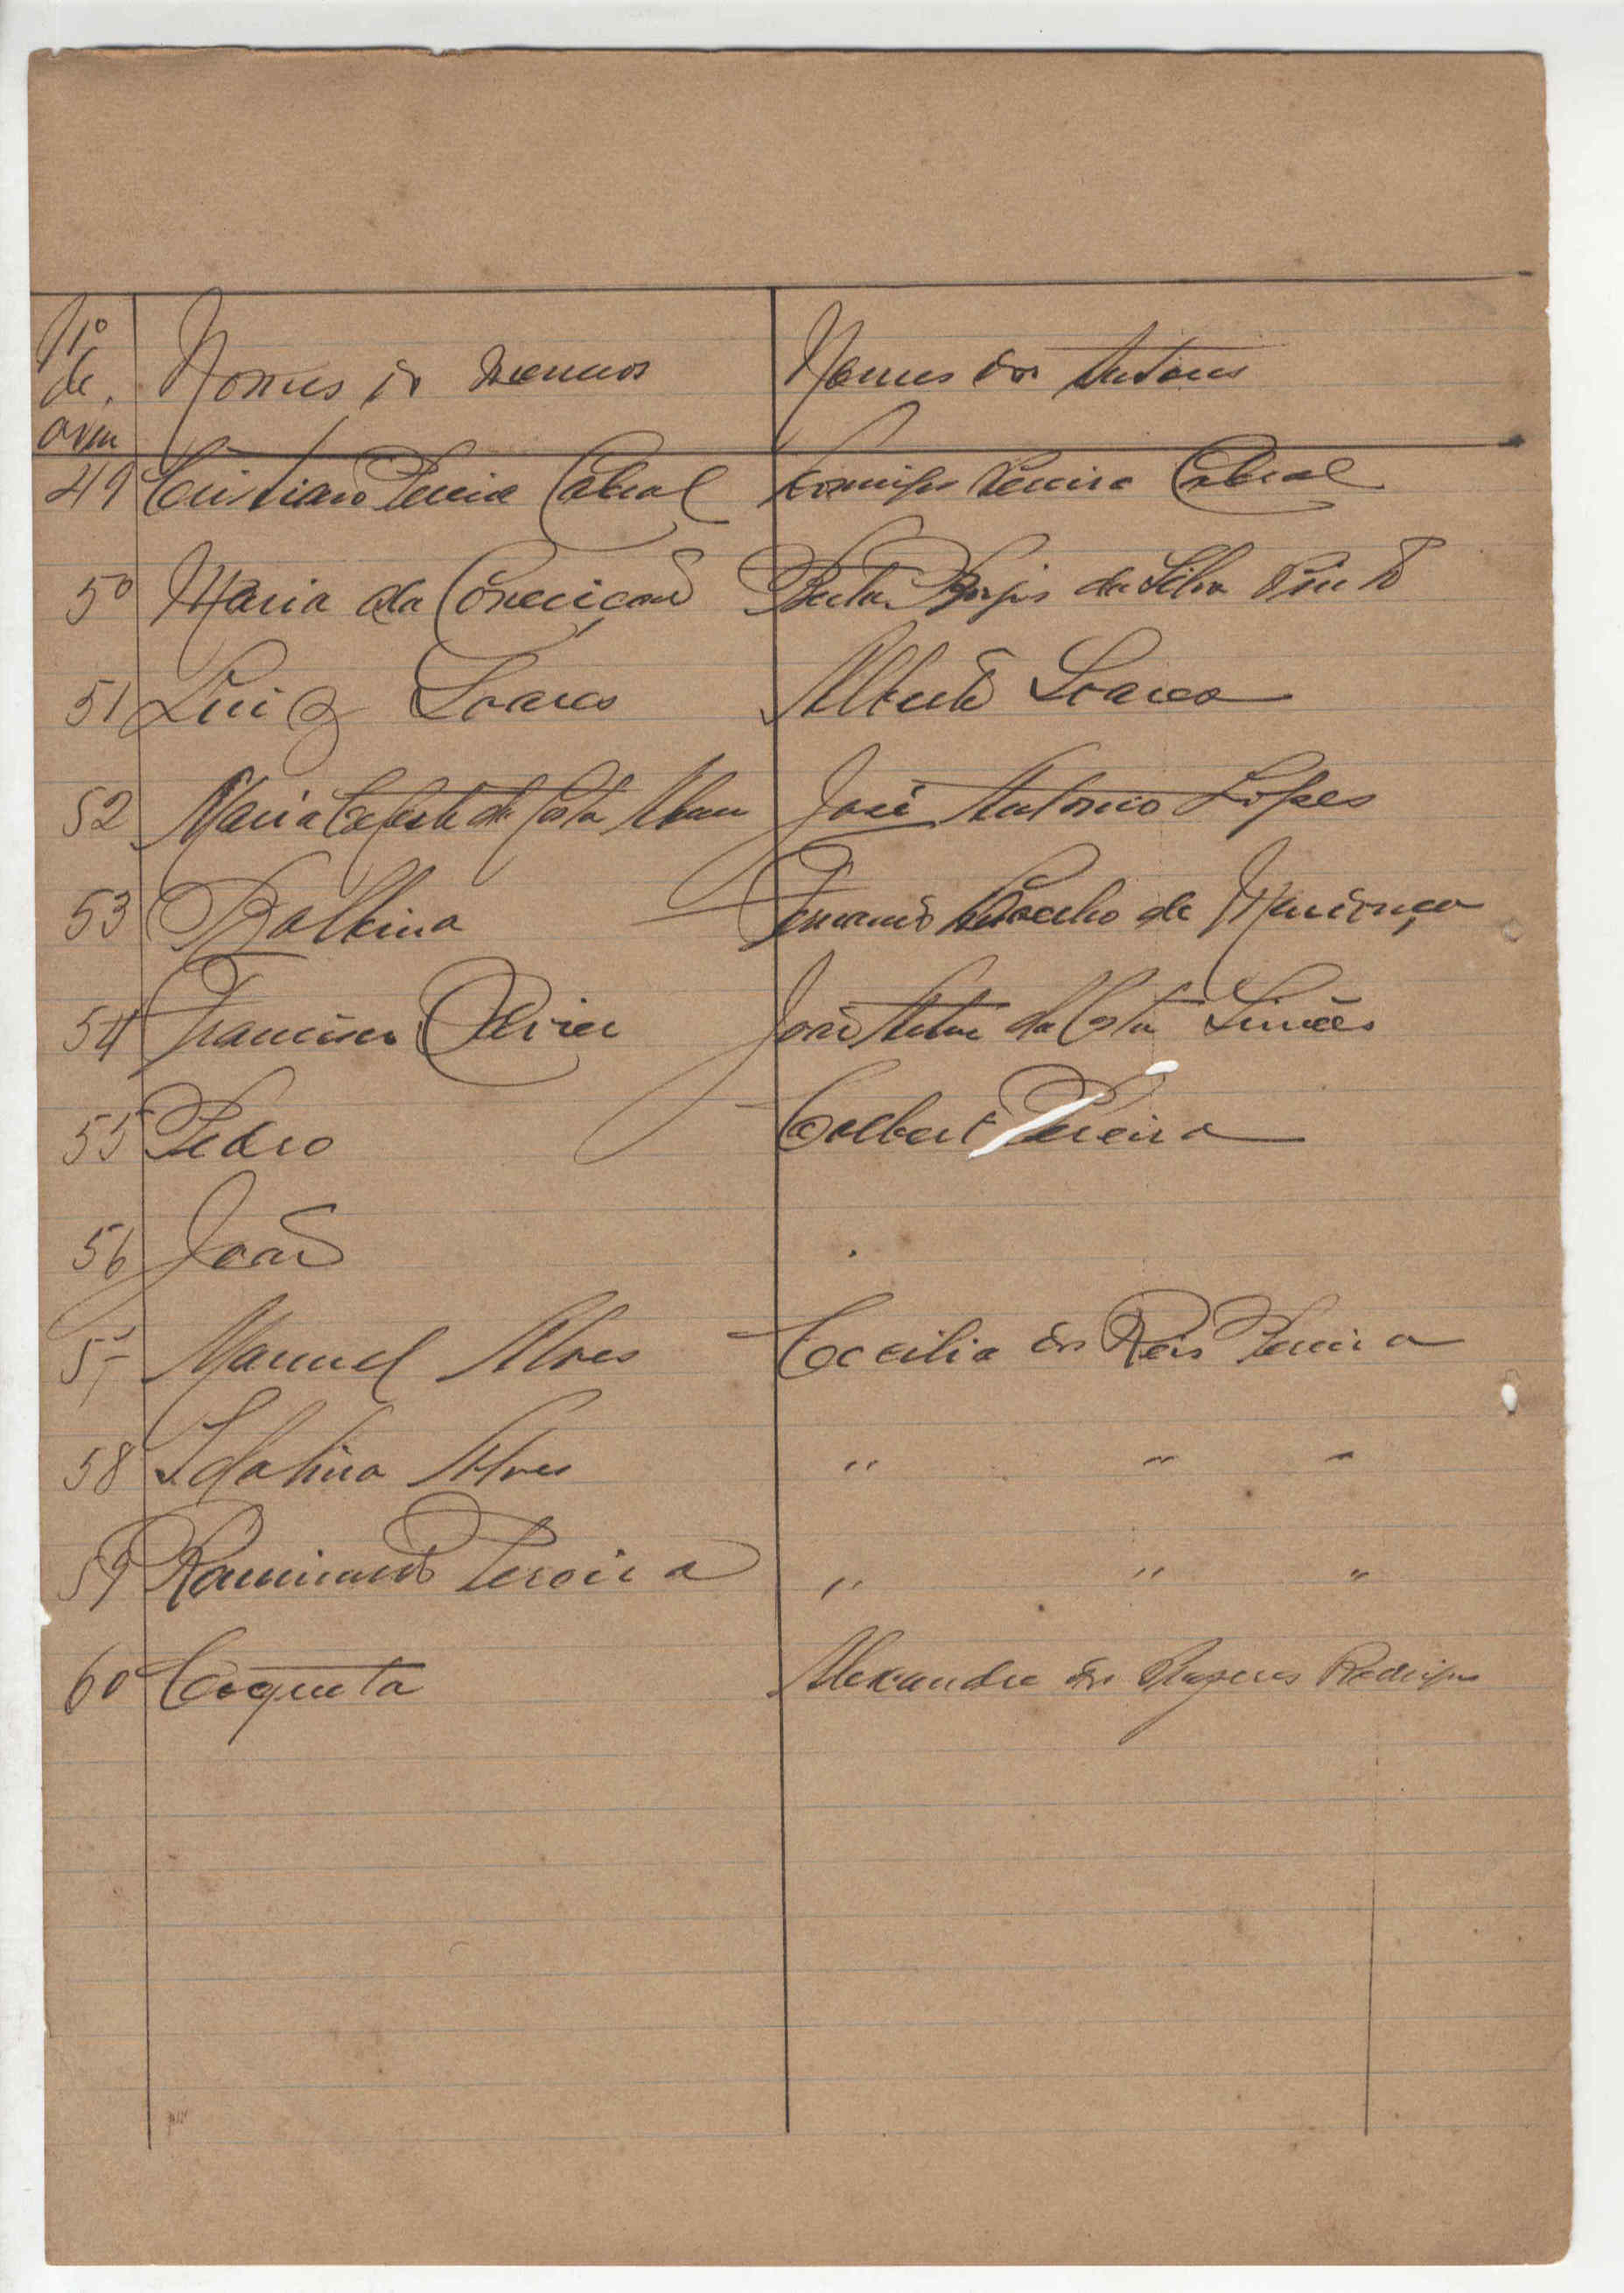 Nº de orm Nomes do menores Nomes dos tutores
49 Cristiano Pereira Cabral Domingos Pereira Cabral
50 Maria da Conceição Berta Borges da Silva Pinto
51 Luiz Soares Alberto Soares
52 Maria Celeste da Costa José Antonio Lopes
53 Balbina Fernando de Mendonça
54 Francisco Olivier José Artur da Costa Simões
55 Pedro Colbert Pereira
56 João
57 Manuel Alves Cecilia dos Reis Pereira
58 Idalina Alves " " "
59 Raimundo Pereira " " "
60 Coqueta Alexandre dos Rodrigues